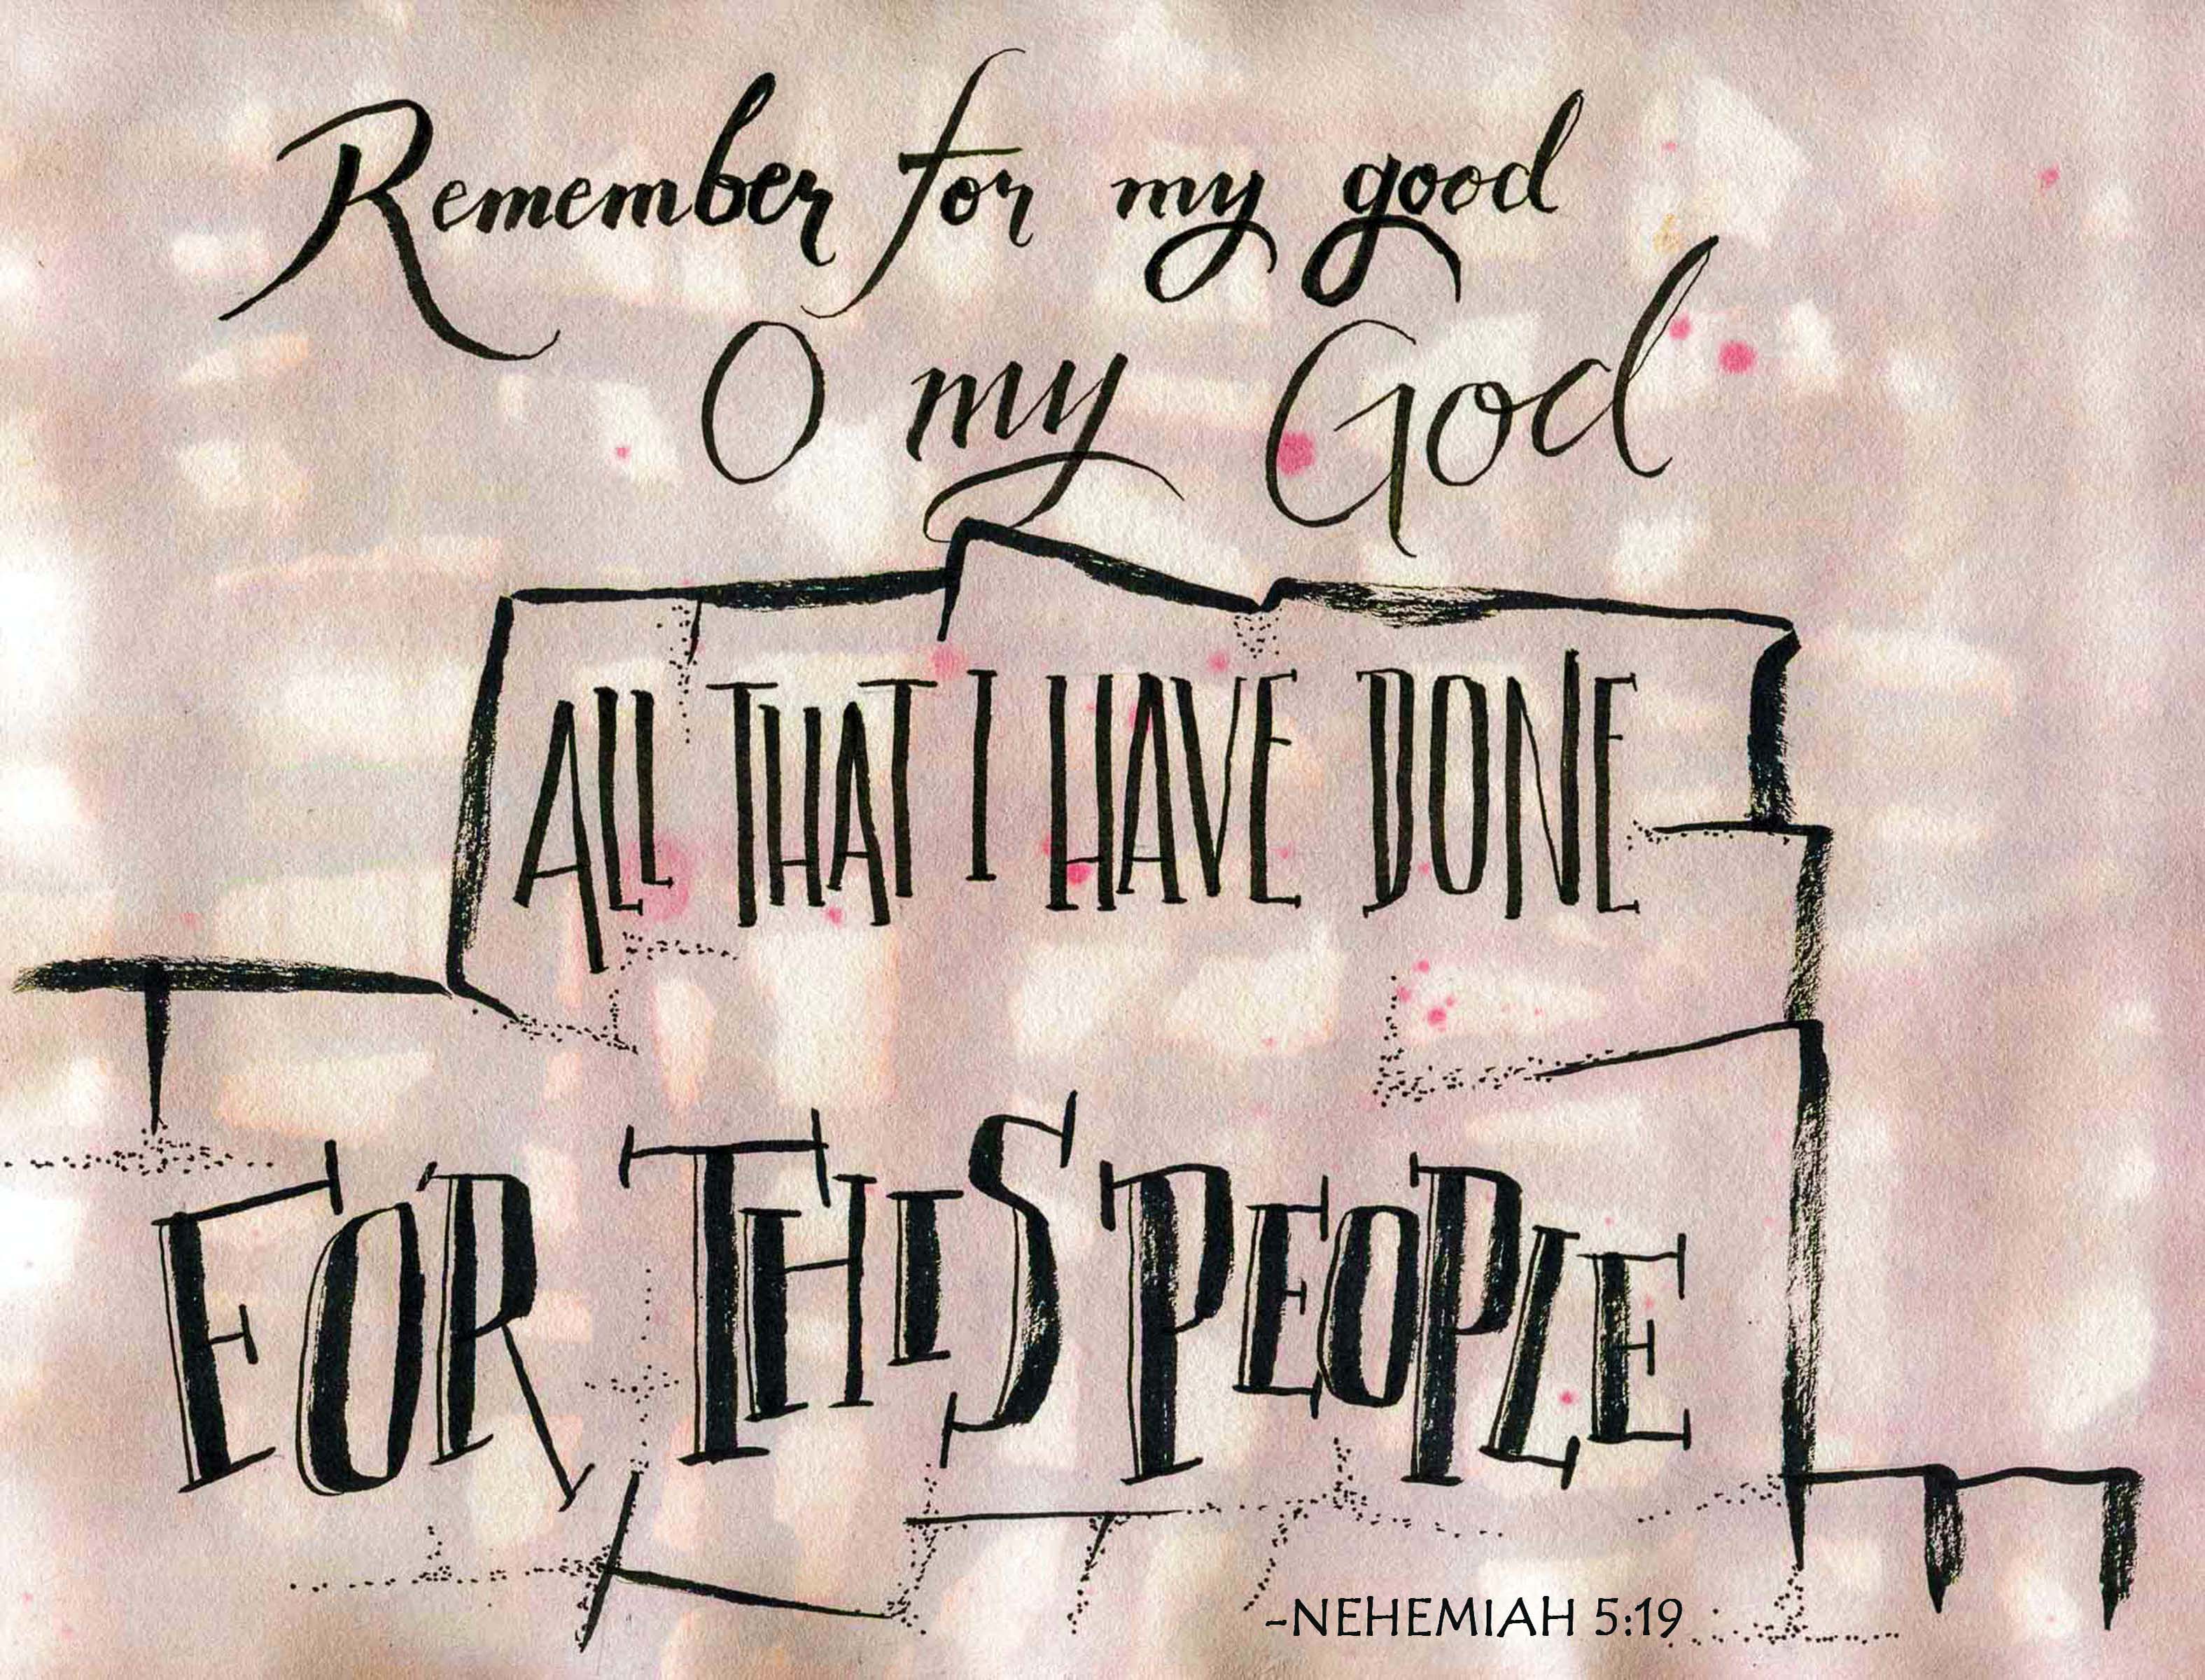 Remember for my good
O my God
ALL THAT I HAVE DONE
FOR THIS PEOPLE
-NEHEMIAH 5:19